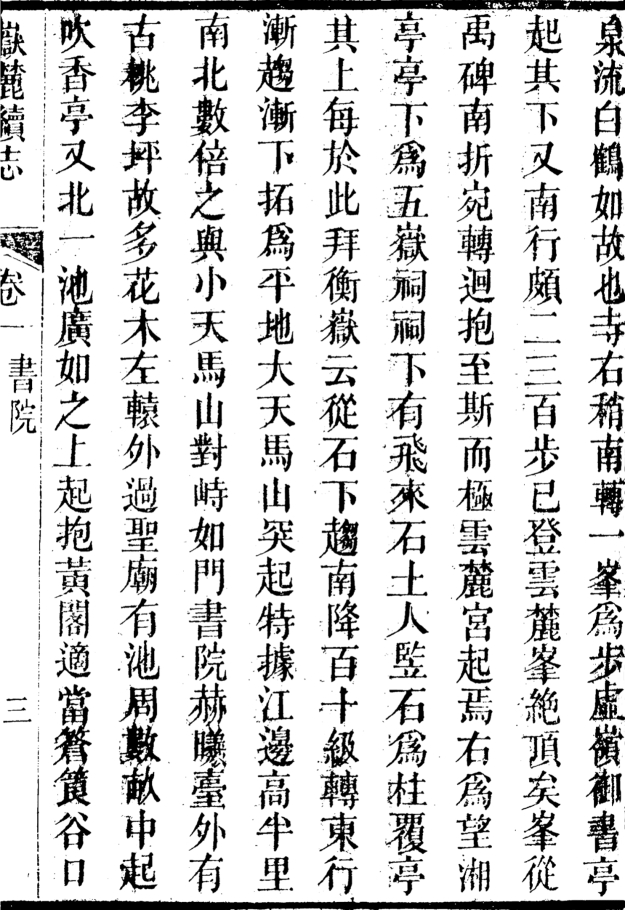 泉流白鶴如故也寺右稍南轉一峯爲步虛嶺御書亭
起其下又南行頗二三百步已登雲麓峯絶頂矣峯從
禹碑南折宛轉迴抱至斯而極雲麓宮起焉右爲望湘
亭亭下爲五嶽祠祠下有飛來石土人竪石爲柱覆亭
其上每於此拜衡嶽云從石下趨南降百十級轉東行
漸趨漸下拓爲平地大天馬山突起特據江邊高半里
南北數倍之與小天馬山對峙如門書院赫曦臺外有
古桃李坪故多花木左轅外過聖廟有池周數畝中起
吹香亭又北一池廣如之上起抱黃閣適當篬筤谷口
嶽麓續志 卷一 書院 三